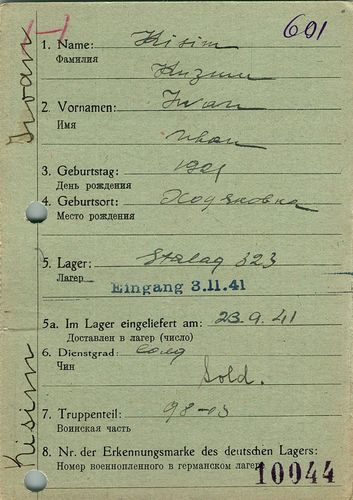 601
1. Name: Kisim
Фамилия
Кизим
2. Vornamen: Iwan
Имя
Иван
3. Geburtstag: 1901
День рождения
4. Geburtsort: Ходяковка
Место рождения
5. Lager: Stalag 323
Лагер
Eingang 3.11.41
5a. Im Lager eingeliefert am: 23.9.41
Доставлен в лагер (число)
6. Dienstgrad: солд
Чин
Sold.
7. Truppenteil:
Воинская часть
8. Nr. der Erkennungsmarke des deutschen Lagers:
Номер военнопленного в германском лагере
10044
Kisim Iwan